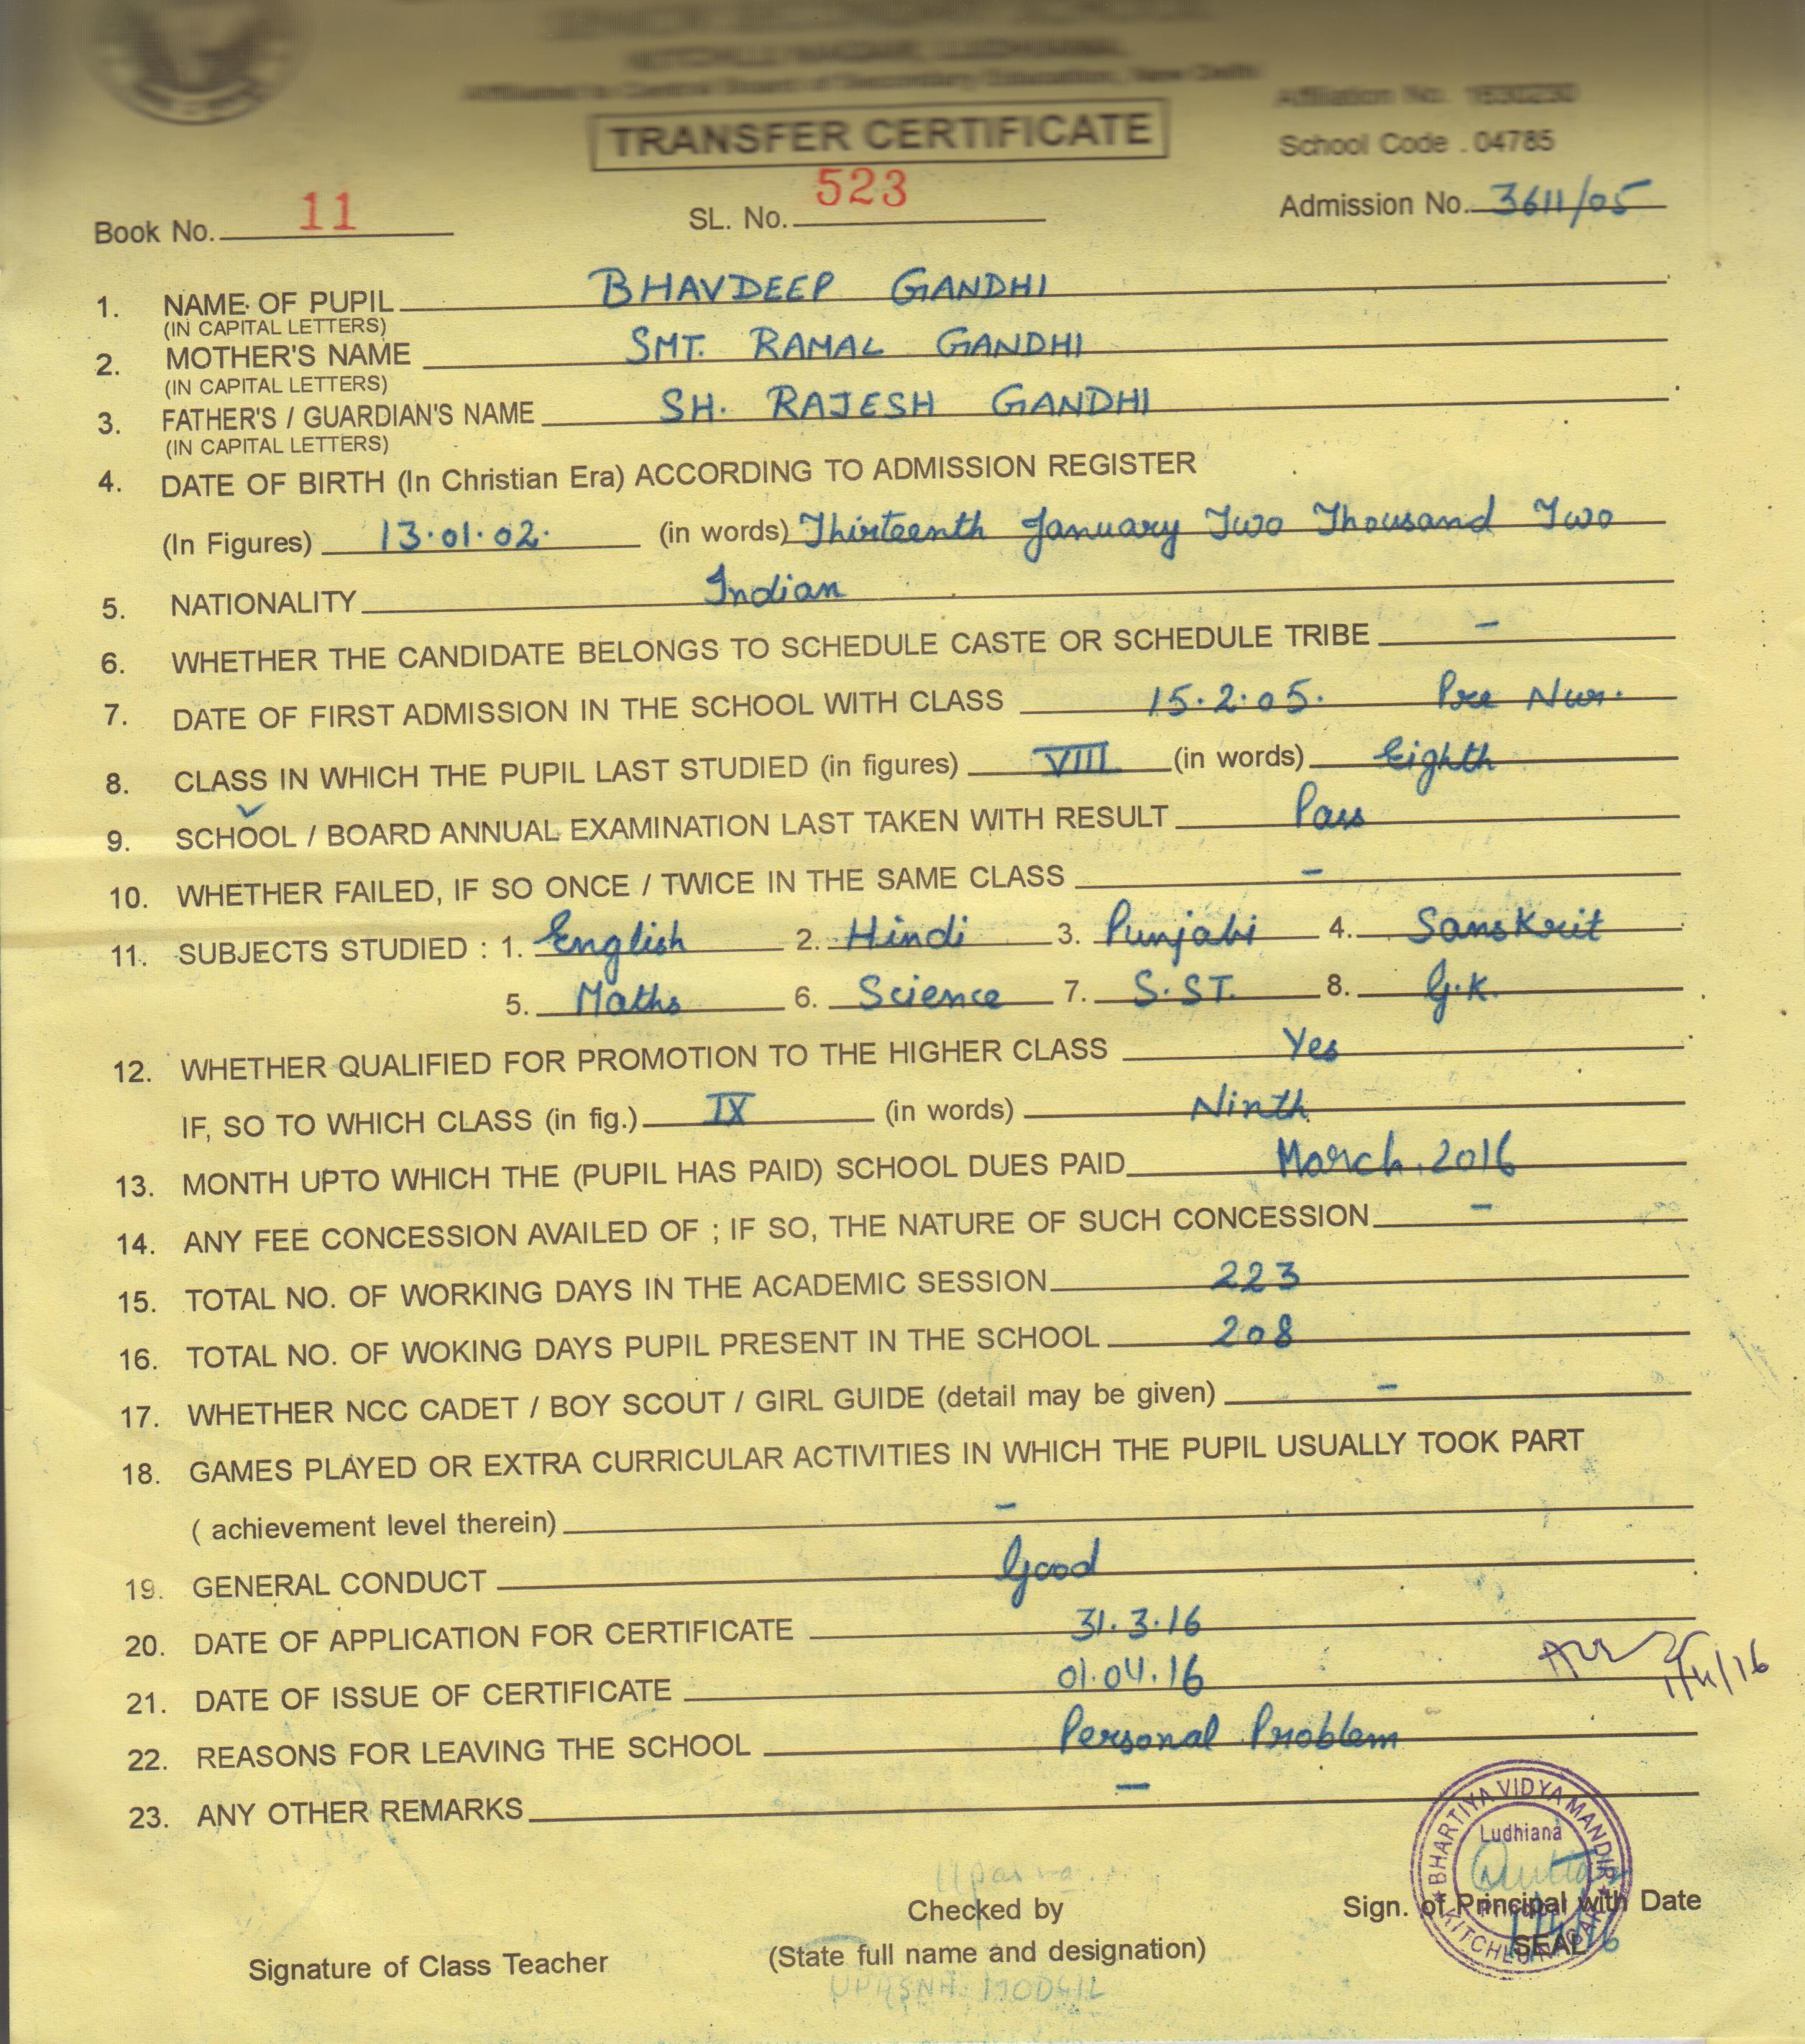 SENIOR SECONDARY SCHOOL
KITCHLU NAGAR, LUDHIANA
Affiliated to Central Board of Secondary Education, New Delhi
Affiliation No. 1630230
TRANSFER CERTIFICATE
School Code . 04785
Book No. 11 SL. No. 523 Admission No. 3611/05
1. NAME OF PUPIL BHAVDEEP GANDHI
(IN CAPITAL LETTERS)
2. MOTHER'S NAME SMT. RAMAL GANDHI
(IN CAPITAL LETTERS)
3. FATHER'S / GUARDIAN'S NAME SH. RAJESH GANDHI
(IN CAPITAL LETTERS)
4. DATE OF BIRTH (In Christian Era) ACCORDING TO ADMISSION REGISTER
(In Figures) 13.01.02. (in words) Thirteenth January Two Thousand Two
5. NATIONALITY Indian
6. WHETHER THE CANDIDATE BELONGS TO SCHEDULE CASTE OR SCHEDULE TRIBE –
7. DATE OF FIRST ADMISSION IN THE SCHOOL WITH CLASS 15.2.05. Pre Nur.
8. CLASS IN WHICH THE PUPIL LAST STUDIED (in figures) VIII (in words) Eighth
9. SCHOOL / BOARD ANNUAL EXAMINATION LAST TAKEN WITH RESULT Pass
10. WHETHER FAILED, IF SO ONCE / TWICE IN THE SAME CLASS –
11. SUBJECTS STUDIED : 1. English 2. Hindi 3. Punjabi 4. Sanskrit
5. Maths 6. Science 7. S.ST. 8. G.K.
12. WHETHER QUALIFIED FOR PROMOTION TO THE HIGHER CLASS Yes
IF, SO TO WHICH CLASS (in fig.) IX (in words) Ninth
13. MONTH UPTO WHICH THE (PUPIL HAS PAID) SCHOOL DUES PAID March, 2016
14. ANY FEE CONCESSION AVAILED OF ; IF SO, THE NATURE OF SUCH CONCESSION –
15. TOTAL NO. OF WORKING DAYS IN THE ACADEMIC SESSION 223
16. TOTAL NO. OF WOKING DAYS PUPIL PRESENT IN THE SCHOOL 208
17. WHETHER NCC CADET / BOY SCOUT / GIRL GUIDE (detail may be given) –
18. GAMES PLAYED OR EXTRA CURRICULAR ACTIVITIES IN WHICH THE PUPIL USUALLY TOOK PART
( achievement level therein) –
19. GENERAL CONDUCT Good
20. DATE OF APPLICATION FOR CERTIFICATE 31.3.16
21. DATE OF ISSUE OF CERTIFICATE 01.04.16
1/4/16
22. REASONS FOR LEAVING THE SCHOOL Personal Problem
23. ANY OTHER REMARKS –
BHARTIYA VIDYA MANDIR
Ludhiana
KITCHLU NAGAR
Checked by
Sign. of Principal with Date
SEAL
Signature of Class Teacher
(State full name and designation)